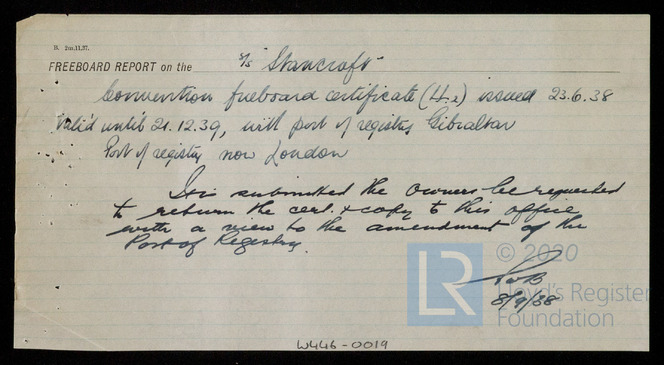 B. 2m.11.37.
FREEBOARD REPORT on the S/S "Stancroft"
Convention freeboard certificate (4.2) issued 23.6.38
Valid until 21.12.39, with port of registry Gibraltar
Port of registry now London
It is submitted the owners be requested
to return the cert. & copy to this office
with a view to the amendment of the
Port of Registry.
8/9/38
LR © 2020
Lloyd's Register
Foundation
W446-0019